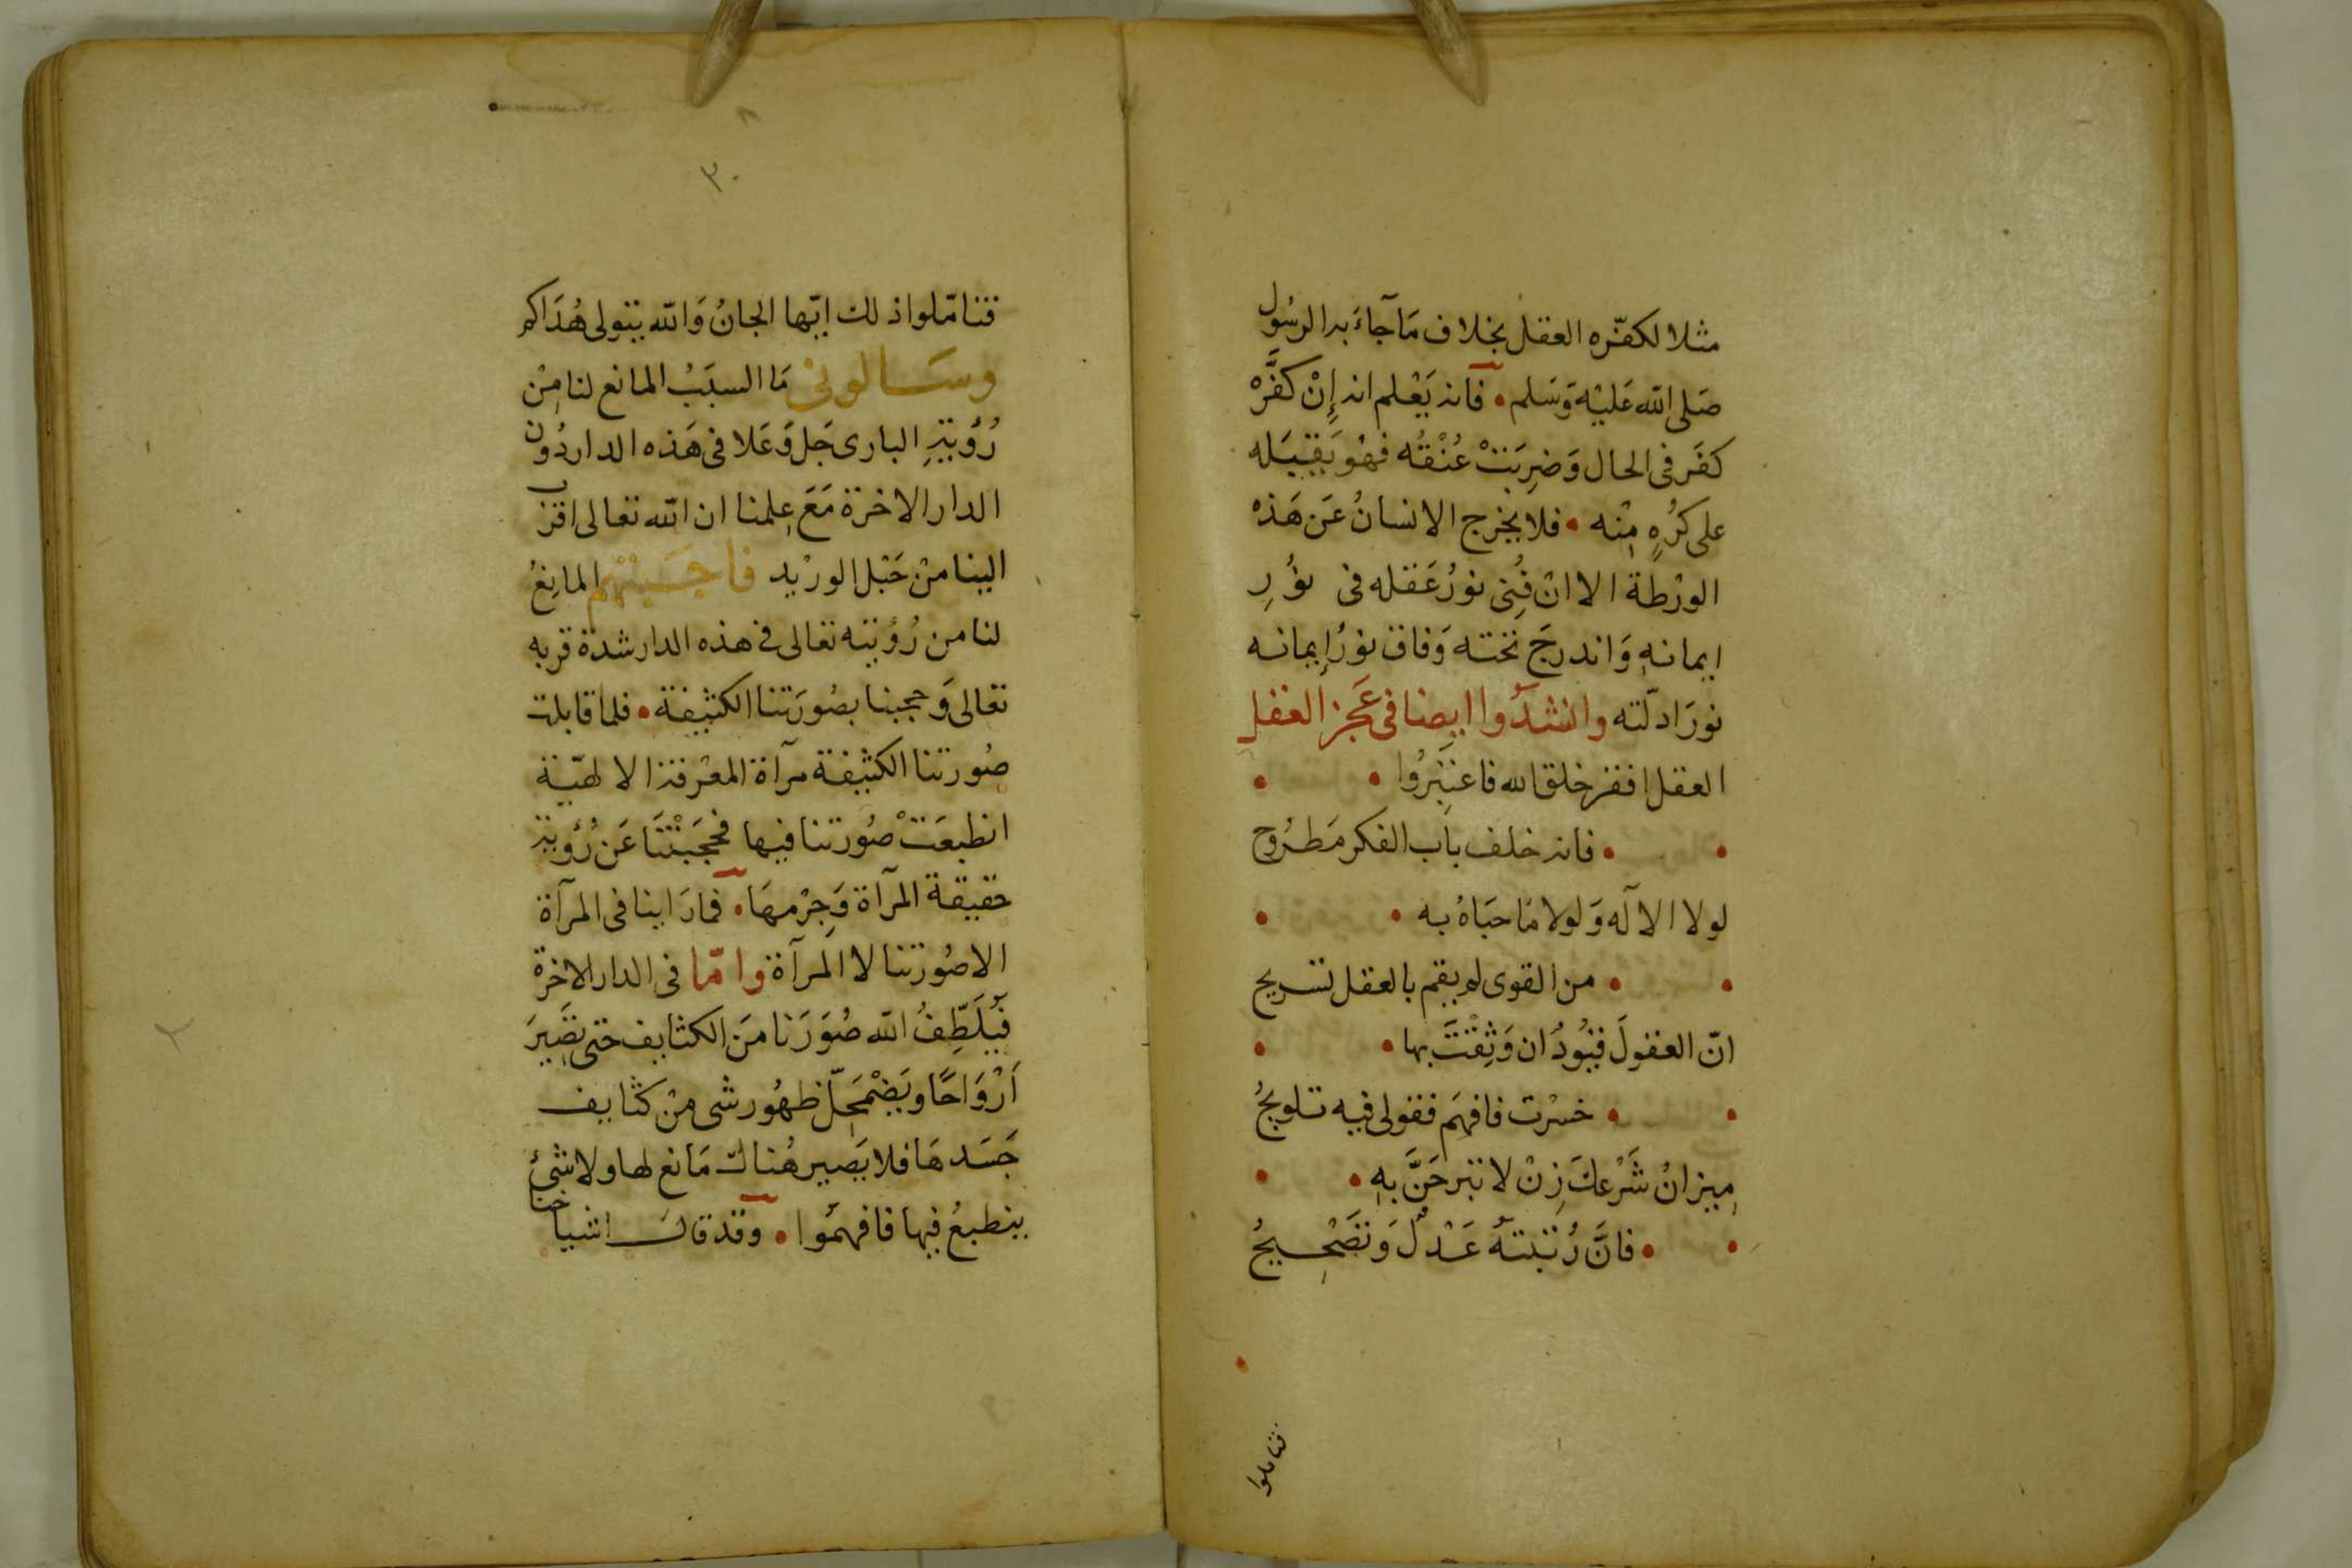 مثلا لكفّره العقل بخلاف مَآجاءَ به الرسُول
صَلى الله عَليْه وَسَلم • فانه يَعْلم انه إِنْ كفَّرهْ
كفَر فى الحال وَضرِبَتْ عُنْقُه فهْو يَقبَله
على كرُهٍ مِنْه • فلا يخرج الانسانُ عَن هَذهْ
الورْطة الا انْ فُنِى نورُ عَقله فى نوُرِ
ايمانهِ وَاندرجَ تحته وَفاق نورُ إيمانه
نورَ ادلّته وانشدُوا ايضا فى عَجز العقل
العقل افقر خلق الله فاعتَبِرُوا •
• فانه خلف باب الفكر مَطرُوح
لولا الالٓه وَلولا مَا حبَاهُ به •
• من القوى لم يقم بالعقل تسريح
انّ العقولَ قيُودُ ان وَثِقْتَ بها •
• خسْرت فافهَم فقولى فيه تلويحُ
مِيزانُ شَرْعكَ زِنْ لا تبرحَنَّ بهِ •
• فانَّ رُتبته عَدْلٌ وَتصْحِيحُ
فتاملوا
٣٠
فتامّلوا ذلك ايّها الجانُ وَالله يتولى هُدَاكم
وسَالونى مَا السبَبُ المانع لنا مِنْ
رُؤيةِ البارى جَل وَعَلا فى هَذه الدار دُون
الدار الاخرة مَعَ عِلمنا ان الله تعالى اقرب
الينا منْ حَبْل الورْيد فاجَبْتهم المانِعُ
لنا من رُؤيته تعالى فى هذه الدار شدة قربه
تعالى وَحجبنا بصُورَتنا الكثيفة • فلما قابلت
صُورتنا الكثيفة مرآة المعْرفة الالهيّة
انطبعَتْ صُورتنا فيها فحجَبَتْنَا عَن رُؤية
حقيقة المرآة وَجِرْمهَا • فمارَاينا فى المرآة
الاصُورتنا لا المرآة وامّا فى الدار الاخرة
فيُلَطِّفُ الله صُوَرَنا منَ الكثايف حتى تصَيرَ
اَرْوَاحًا ويَضْمَحِلّ ظهُور شى منْ كثايف
جَسَدهَا فلا يَصير هُناك مَانع لها ولا شئ
ينطبعُ فيها فافهمُوا • وقد قال اشياخنا